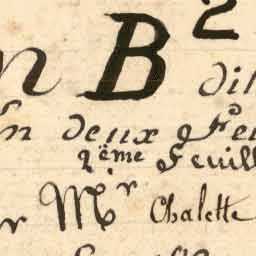 B 2
En deux Feu
2ème Feuill
r Mr Chalette